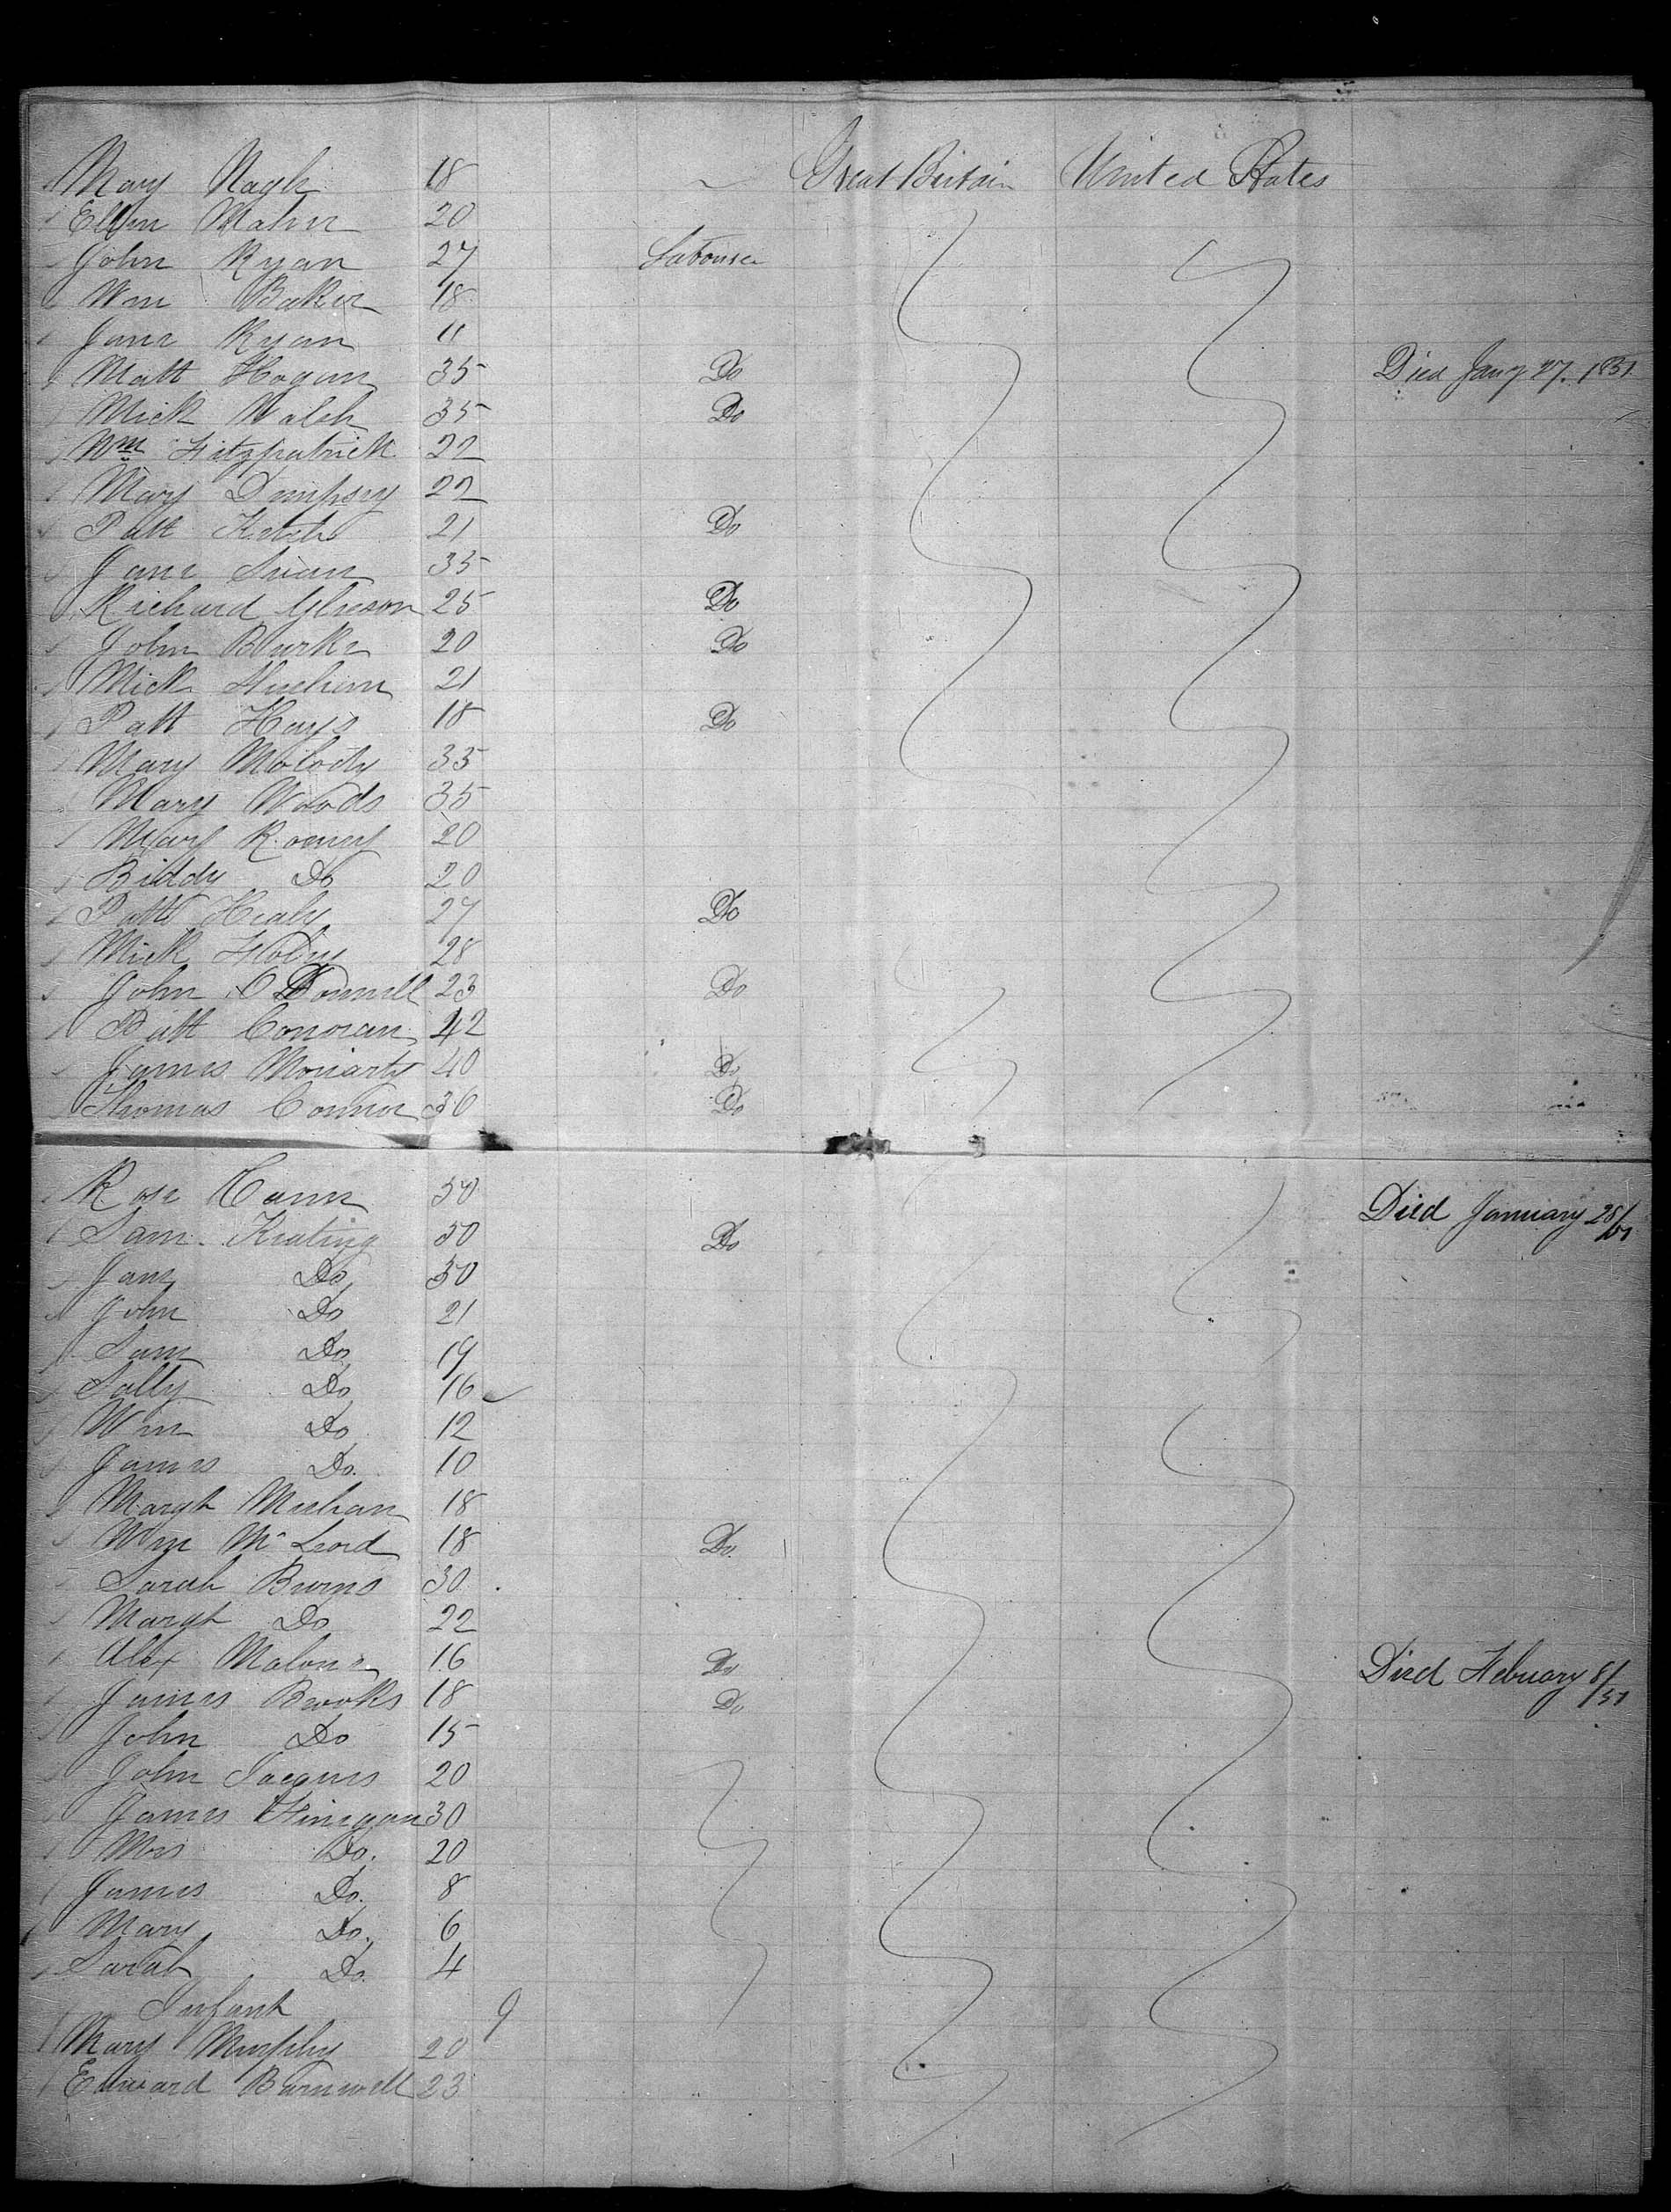 Mary Nagle 18 Great Britain United States
Ellen Maher 20
John Ryan 27 Labourer
Wm Baker 18
Jane Ryan 11
Matt Hogan 35 Do Died Jany 27. 1851
Mick Walsh 35 Do
Wm Fitzpatrick 22
Mary Dempsey 22
Patt 21 Do
Jane 35
Richard Gleeson 25 Do
John Burke 20 Do
Mick 21
Patt Hays 18 Do
Mary Molody 35
Mary Woods 35
Mary Rooney 20
Biddy Do 20
Patt Healy 27 Do
Mick 28
John O Donnell 23 Do
Patt Conoran 42
James Moriarty 40 Do
Thomas Connor 36 Do
Rose Cann 50 Died January 28/51
Sam Keating 50 Do
Jane Do 50
John Do 21
Sam Do 19
Sally Do 16
Wm Do 12
James Do. 10
Margt Meehan 18
Wm McLeod 18 Do.
Sarah Burns 30
Margt Do 22
Alex Malone 16 Do Died Febuary 8/51
James Brooks 18 Do
John Do 15
John Jacques 20
James Finegan 30
Mrs Do. 20
James Do. 8
Mary Do. 6
Sarah Do. 4
Infant 9
Mary Murphy 20
Edward Barnwell 23